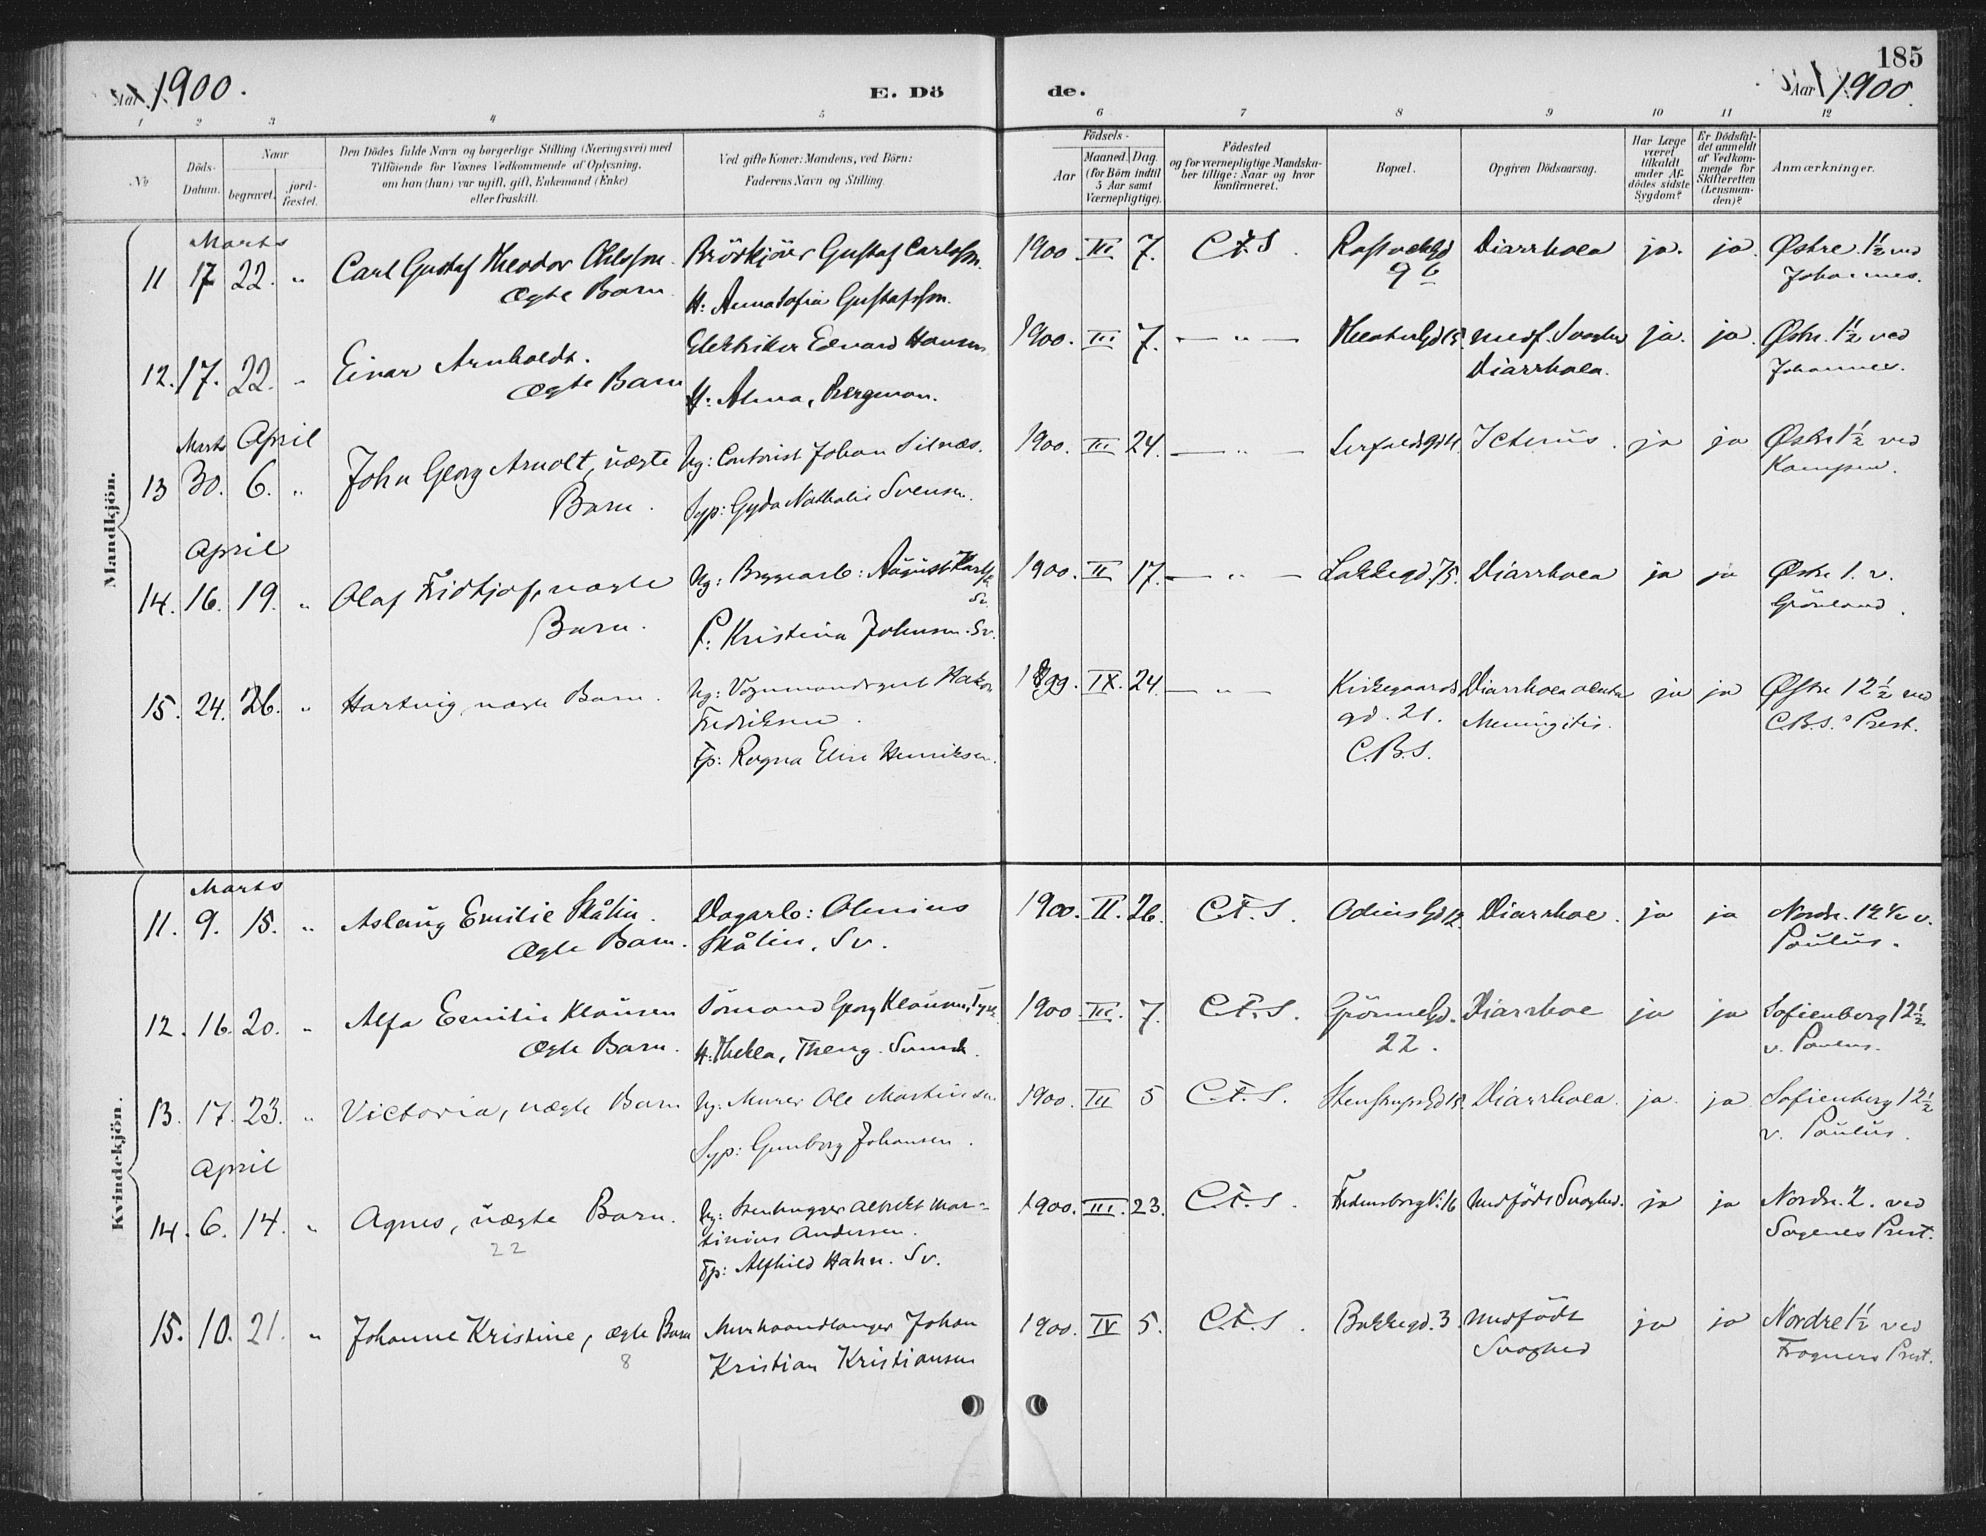 185
Aar 1900.
E. Dö
de.
Aar 1900.
1 2 3 4 5 6 7 8 9 10 11 12
No
Döds-
Datum.
Naar
begravet.
jord-
fæstet.
Den Dödes fulde Navn og borgerlige Stilling (Næringsvei) med
Tilföiende for Voxnes Vedkommende af Oplysning,
om han (hun) var ugift, gift, Enkemand (Enke)
eller fraskilt.
Ved gifte Koner: Mandens, ved Börn:
Faderens Navn og Stilling.
Födsels-
Aar
Maaned. Dag.
(for Börn indtil
5 Aar samt
Værnepligtige).
Födested
og for værnepligtige Mandska-
ber tillige: Naar og hvor
konfirmeret.
Bopæl.
Opgiven Dödsaarsag.
Har Læge
været
tilkaldt
under Af-
dödes sidste
Sygdom?
Er Dödsfal-
det anmeldt
af Vedkom-
mende for
Skifteretten
(Lensman-
den)?
Anmærkninger.
Mandkjön.
Marts
11 17 22. " Carl Gustaf Theodor Ohlsson. Gustaf Carlsson. 1900 III. 7. C.F.S. 1900 Diarrhoea ja. ja. Østre. 1½ ved
Ægte Barn H: Anna Sofia Gustafsson. 9 b Johannes.
12. 17. 22. " Einar Arnholdt. Elektriker Edvard Hansen 1900. III 7. — " — Diarrhoea. ja. ja. Østre. 1½ ved
Ægte Barn H: Alma, Bergman. Johannes.
Marts April
13 30. 6. " John Georg Arnolt, uægte Ug: Contorist Johan Silnæs. 1900. III 24. — " — Icterus. ja ja Østre 1½ ved
Barn. Syp: Gyda Nathalie Svensen. Kampen.
April
14. 16. 19. " Olaf Fridtjof, uægte Ug: Bryggearb: August Karls 1900. II 17. — " — Lakkegd. 75. Diarrhoea ja ja Østre 1. v.
Barn. P. Kristina Johnsen. Sv. Grönland.
15. 24. 26. " Hartvig uægte Barn. Ug: Hakon 1899. IX. 24 — " — Kirkegaards Diarrhoea ja ja Østre 12½ ved
Fredriksen. gd. 21. Meningitis. C.B.S.s Prest.
Fp: Ragna Elise Henriksen. C.B.S.
Kvindekjön.
Marts
11. 9. 15. " Aslaug Emilie Skålin. Dagarb: Olenius 1900. II. 26. C.F.S. Odins Gd 12. Diarrhoe. ja ja Nordre. 12½ v.
Ægte Barn. Skålin. Sv. Paulus.
12. 16. 20. " Alfa Emilie Klausen Sömand Georg Klausen, 1900 III. 7. C.F.S. Grönne Gd. Diarrhoe ja ja Sofienberg 12½
Ægte Barn. H: Thekla, Theng. 22. v. Paulus.
13. 17. 23. " Victoria, uægte Barn Ug. Murer Ole Martinsen 1900. III 5 C.F.S. Diarrhoea. ja ja Sofienberg 12½
Syp: Gunborg Johansen. v. Paulus.
April
14. 6. 14. " Agnes, uægte Barn. Ug: Stenhugger Albrekt Mar- 1900. III. 23. C.F.S. Fredensborgv. 16 Medfödt Svaghed. ja ja Nordre. 2. ved
22 tinius Andersen. Sagenes Prest.
Fp: Alfhild Hahn. Sv.
15. 10. 21. " Johanne Kristine, ægte Barn Murhaandlanger Johan 1900. IV 5. C.F.S. Bakkegd. 3. Medfödt ja ja Nordre 1½ ved
8 Kristian Kristiansen Svaghed Frogners Prest.